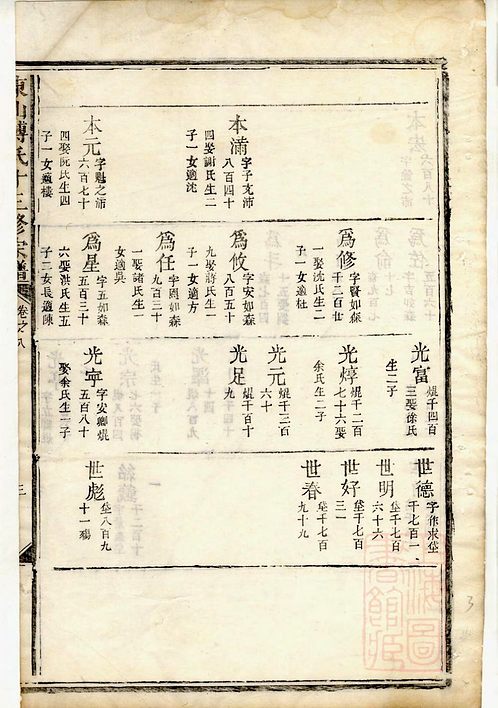 本滿
字子克沛
八百四十
四娶謝氏生二
子一女適沈
本元
字魁之沛
六百七十
四娶阮氏生四
子一女適樓
爲修
字賢如森
千二百廿
一娶沈氏生二
子一女適杜
爲攸
字安如森
八百五十
九娶蔣氏生一
子一女適方
爲任
字園如森
九百三十
一娶諸氏生一
女適吳
爲星
字五如森
五百三十
六娶洪氏生五
子二女長適陳
光富
焜千四百
三娶徐氏
生二子
光焞
焜千二百
七十六娶
余氏生二子
光元
焜千三百
六十
光足
焜千一百
九
光寧
字安卿焜
五百八十
娶余氏生一子
世德
字作求垈
千七百一
世明
垈千七百
六十六
世好
垈千七百
三一
世春
垈千七百
九十九
世彪
垈八百九
十一殤
東山傅氏十三修宗譜
卷之八
三
3